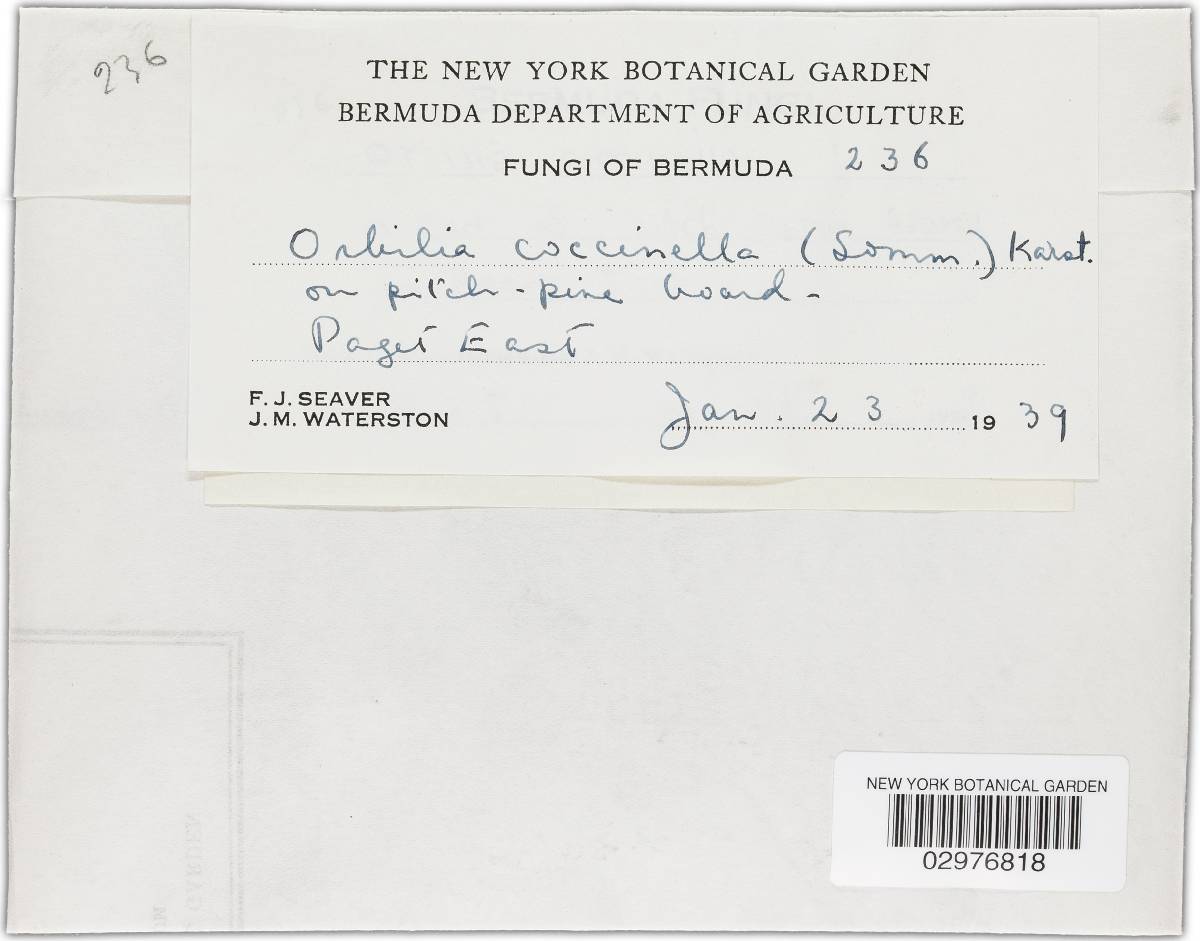 236
THE NEW YORK BOTANICAL GARDEN
BERMUDA DEPARTMENT OF AGRICULTURE
FUNGI OF BERMUDA 236
Orbilia coccinella (Somm.) Karst.
on pitch-pine board-
Paget East
F. J. SEAVER
J. M. WATERSTON
Jan. 23 1939
NEW YORK BOTANICAL GARDEN
02976818